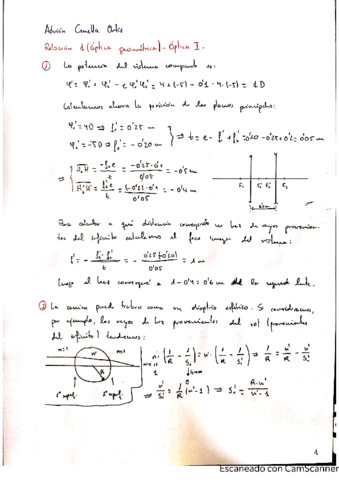 Adrián Comella Ortiz
Relación 1 (Óptica geométrica) - Óptica I.
① La potencia del sistema compuesto es:
φ' = φ₁' + φ₂' - e φ₁'φ₂' = 4 + (-5) - 0'1 · 4 · (-5) = 1 D
Calculamos ahora la posición de los planos principales:
φ₁' = 4D ⇒ f₁' = 0'25 m
φ₂' = -5D ⇒ f₂' = -0'20 m
⇒ t = e - f₁' + f₂' = 0'10 - 0'25 + 0'2 = 0'05 m
= -0'25·0'1 / 0'05 = -0'5 m
= (-0'2)·0'1 / 0'05 = -0'4 m
Para calcular a qué distancia convergerá un haz de rayos provenien-
tes del infinito calculamos el foco imagen del sistema:
f' = - f₁' f₂' / t = - 0'25(-0'20) / 0'05 = 1 m
Luego el haz convergerá a 1 - 0'4 = 0'6 m de la segunda lente.
② La canica puede tratarse como un dioptrio esférico. Si consideramos,
por ejemplo, los rayos de luz provenientes del sol (provenientes
del infinito) tendremos:
n=1 n' n=1
R
1ª superf. 2ª superf.
n · (1/R - 1/S₀) = n' · (1/R - 1/S₀') ⇒ 1/R = n'/R - n'/S₀'
⇒ n'/S₀' = 1/R (n' - 1) ⇒ S₀' = R·n' / n' - 1
1
Escaneado con CamScanner